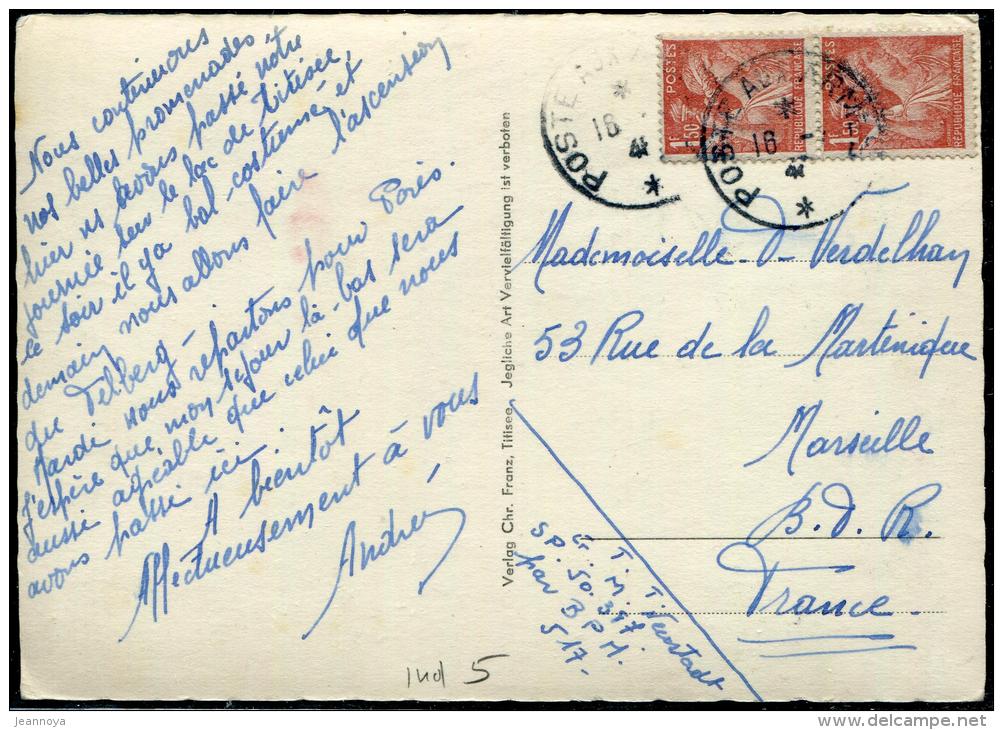 Nous continuons
nos belles promenades
hier ns avons passé notre
journée sur le lac de Titisee,
ce soir il y a bal costumé et
demain nous allons faire l'ascension
du Felberg -
Mardi nous repartons pour Paris
J'espère que mon séjour là-bas sera
aussi agréable que celui que nous
avons passé ici.
A bientôt
Affectueusement à vous
Andrée
Verlag Chr. Franz, Titisee. Jegliche Art Vervielfältigung ist verboten
POSTES
1F50
RÉPUBLIQUE FRANÇAISE
POSTES
RÉPUBLIQUE FRANÇAISE
POSTE AUX
18
POSTE AUX ARMÉES
18
Mademoiselle O Verdelhan
53 Rue de la Martinique
Marseille
B.d.R.
France.
T.M. Neustadt
SP. 50.347.
par B P M.
517-
ind 5
jeannoya
www.delcampe.net